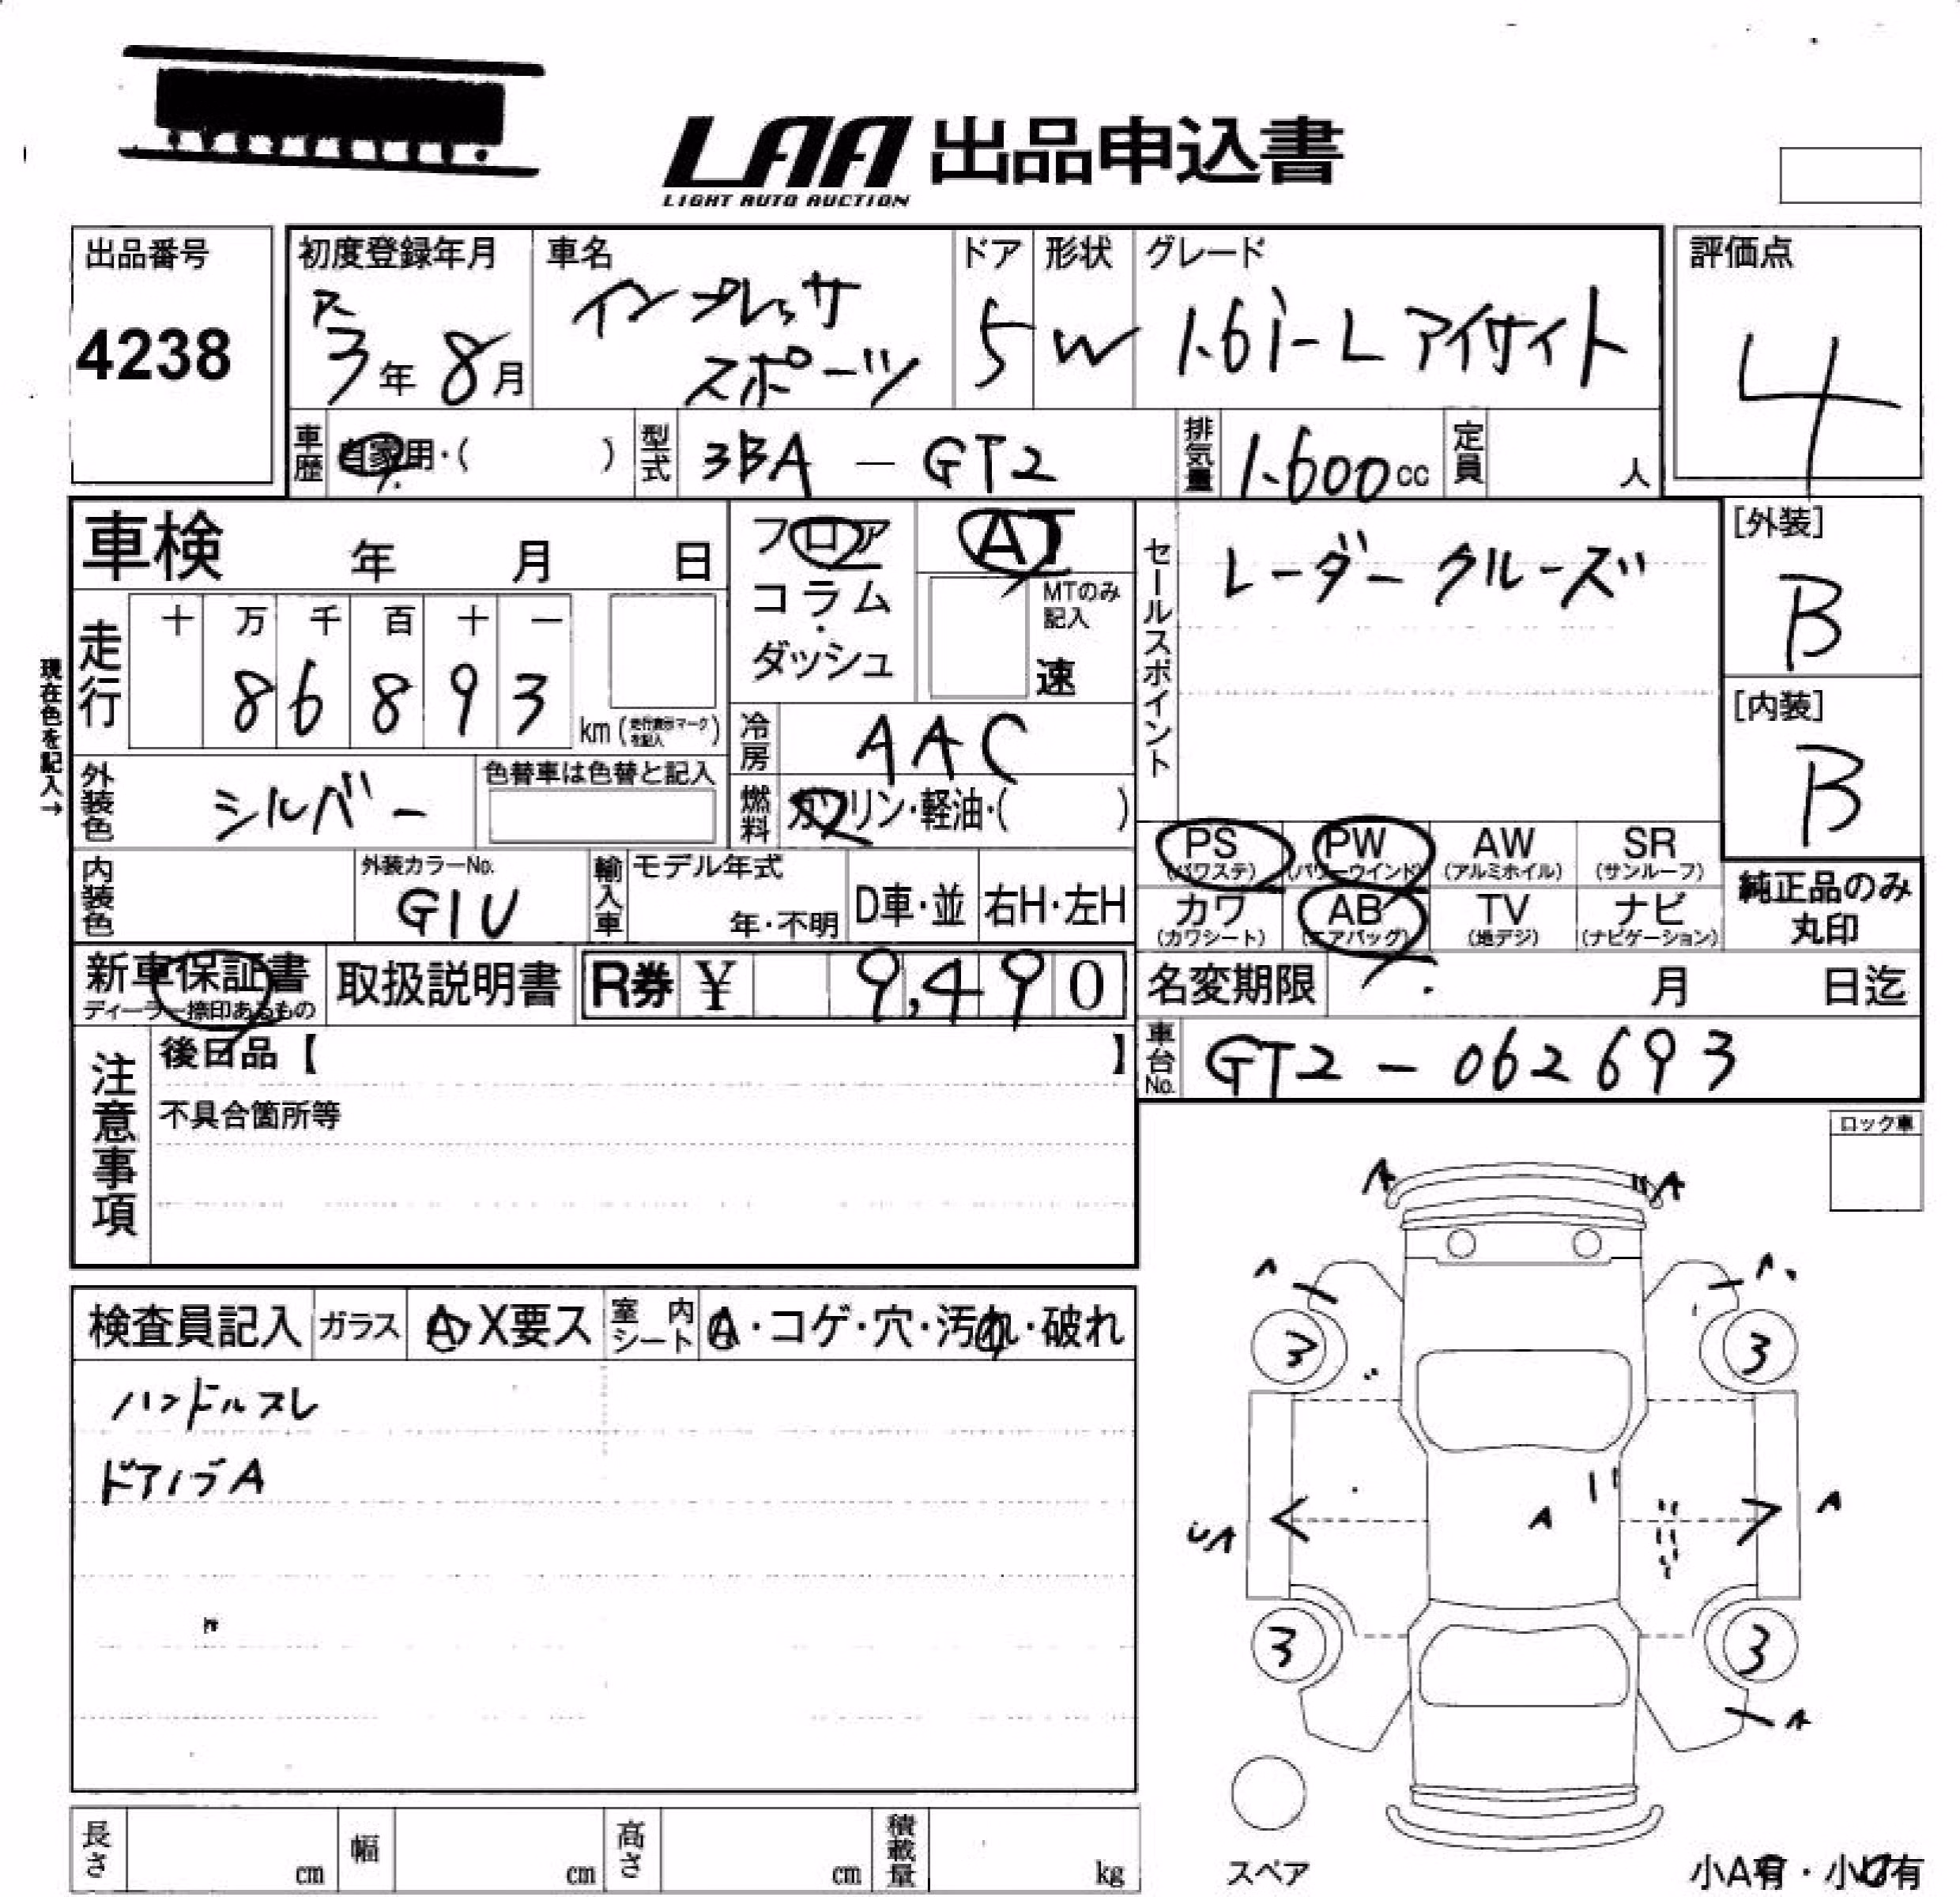 LAA 出品申込書
LIGHT AUTO AUCTION
出品番号
4238
初度登録年月
R3年8月
車名
インプレッサ
スポーツ
ドア
5
形状
W
グレード
1.6i-L アイサイト
評価点
4
車歴
自家用・( )
型式
3BA - GT2
排気量
1.600cc
定員
人
車検 年 月 日
フロア
コラム
・
ダッシュ
AT
MTのみ
記入
速
セールスポイント
レーダークルーズ
[外装]
B
[内装]
B
現在色を記入→
走行
十 万 千 百 十 一
8 6 8 9 3
km (走行表示マークを記入)
冷房
AAC
外装色
シルバー
色替車は色替と記入
燃料
ガソリン・軽油・( )
PS
(パワステ)
PW
(パワーウインド)
AW
(アルミホイル)
SR
(サンルーフ)
カワ
(カワシート)
AB
(エアバッグ)
TV
(地デジ)
ナビ
(ナビゲーション)
純正品のみ
丸印
内装色
外装カラーNo.
G1U
輸入車
モデル年式
年・不明
D車・並
右H・左H
新車保証書
ディーラー捺印あるもの
取扱説明書
R券 ¥ 9,490
名変期限 月 日迄
車台No.
GT2-062693
注意事項
後日品【 】
不具合箇所等
ロック車
検査員記入
ガラス
A・X要ス
室内シート
A・コゲ・穴・汚れ・破れ
ハンドルスレ
ドアノブA
A
A
A
A
3
3
UA
A
A
3
3
A
スペア
長さ cm
幅 cm
高さ cm
積載量 kg
小A有・小U有